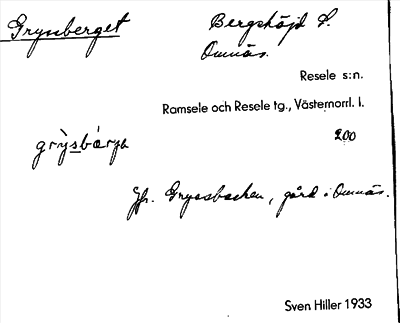 Grynberget Bergshöjd S.
Omnäs.
Resele s:n.
Ramsele och Resele tg., Västernorrl. l.
grỳsbárja 200
Jfr. Gryssbacken, gård i Omnäs.
Sven Hiller 1933